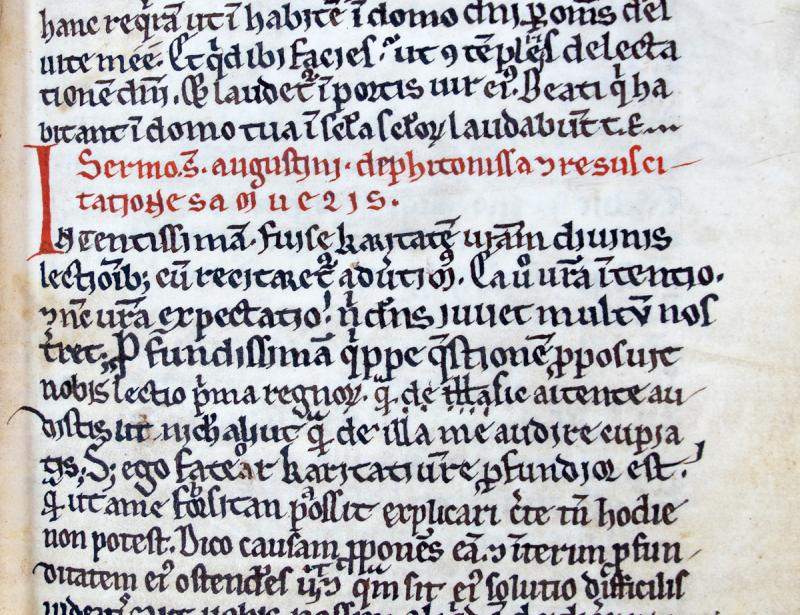 hanc reqͥrā ut ī habitē ī domo dn̄j ꝑ om̄s dei
uite mee. Et qͥd ibi facies. ut ꝯtēplēs delecta
tionē dn̄i. laudet ī portis uir eiꝰ. Beati qͥ ha
bitant ī domo tua ī scl̄a scl̄oꝝ laudabūt t. &
Sermo. s̄. augustini. de phitonissa ⁊ resusci-
tatione samuelis.
Intentissimā. fuise karitatē urām diuinis
lectiōib; cū recitaret̄ aduti. Ca ur̄a ītentio.
ur̄a expectatio. dn̄s iuuet multū nos
Pfundissimā qͥppe q̄stionē ꝓposuit
nobis lectio pͥma regnoꝝ. q̄ de illa sic aitente au
distis ut nichil aliut q̄ de illa me audire cupia
tis. S; ego fateor karitati ur̄e ꝓfundior est.
q̄ ut a me forsitan possit explicari c̄te tn̄ hodie
non potest. Dico causam ꝓponēs eā. ⁊ īterim ꝓfun
ditatem eiꝰ ostendēs qm̄ sit eiꝰ solutio difficilis